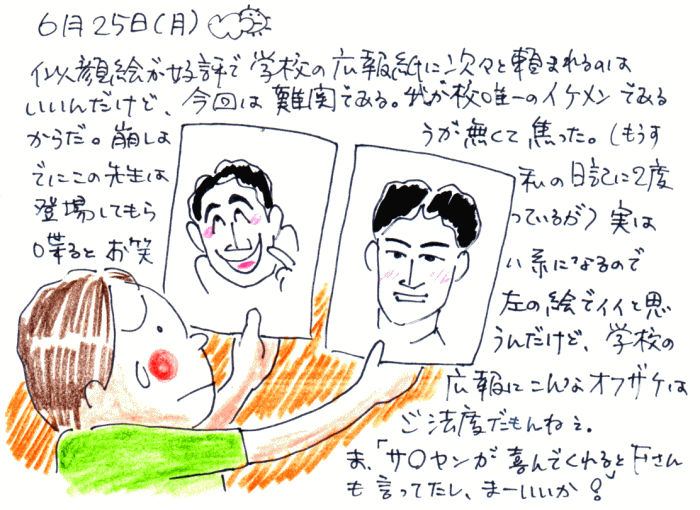 6月25日(月)
似顔絵が好評で学校の広報紙に次々と頼まれるのは
いいんだけど、今回は難関である。我が校唯一のイケメンである
からだ。崩しようが無くて焦った。(もうす
でにこの先生は私の日記に2度
登場してもらっているが)実は
喋るとお笑い系になるので
左の絵でイイと思
うんだけど、学校の
広報にこんなオフザケは
ご法度だもんねぇ。
ま、「サ〇ヤンが喜んでくれる」とFさん
も言ってたし、まーいいか!